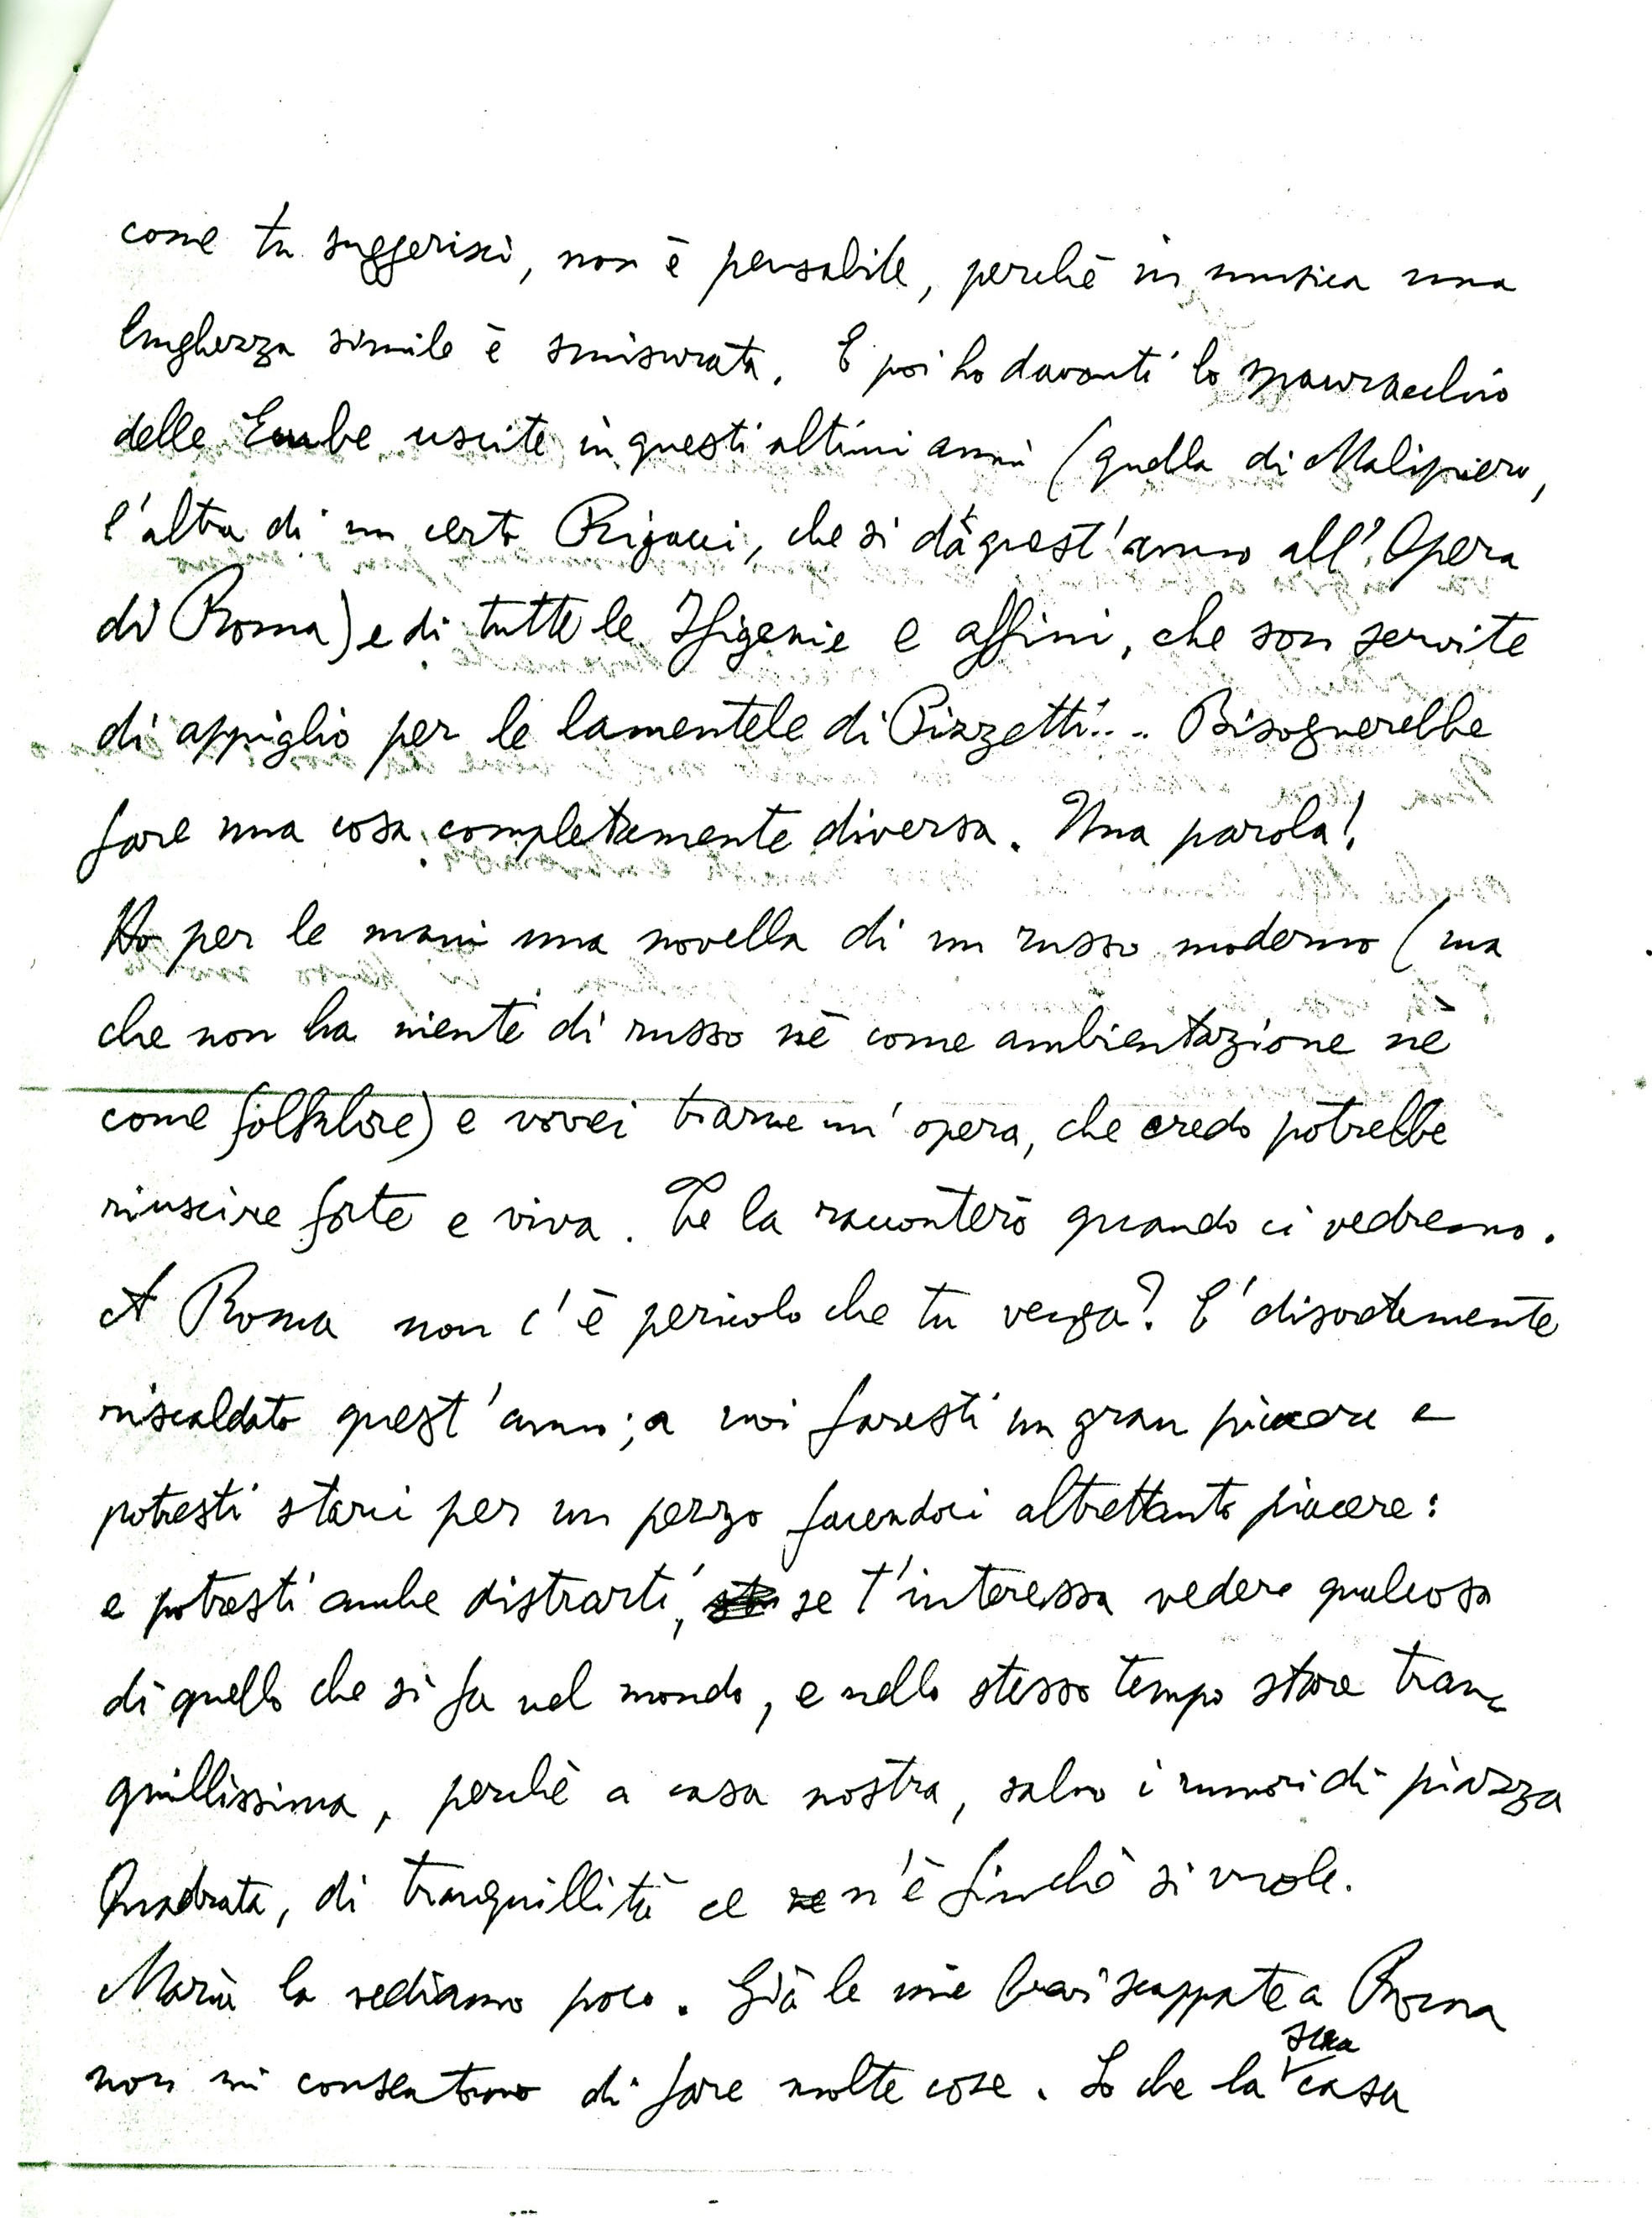 come tu suggerisci, non è pensabile, perchè in musica una
lunghezza simile è smisurata. E poi ho davanti lo spauracchio
delle Ecube uscite in questi ultimi anni (quella di Malipiero,
l'altra di un certo Rigacci, che si dà quest'anno all'Opera
di Roma) e di tutte le Ifigenie e affini, che son servite
di appiglio per le lamentele di Pizzetti... Bisognerebbe
fare una cosa completamente diversa. Una parola!
Ho per le mani una novella di un russo moderno (ma
che non ha niente di russo nè come ambientazione nè
come folklore) e vorrei trarne un'opera, che credo potrebbe
riuscire forte e viva. Te la racconterò quando ci vedremo.
A Roma non c'è pericolo che tu venga? E' discretamente
riscaldato quest'anno; a noi faresti un gran piacere e
potresti starci per un pezzo facendoci altrettanto piacere:
e potresti anche distrarti, se t'interessa vedere qualcosa
di quello che si fa nel mondo, e nello stesso tempo stare tran-
quillissima, perchè a casa nostra, salvo i rumori di piazza
Quadrata, di tranquillità ce n'è finchè si vuole.
Maria la vediamo poco. Già le mie brevi scappate a Roma
non mi consentono di fare molte cose. So che la sua casa